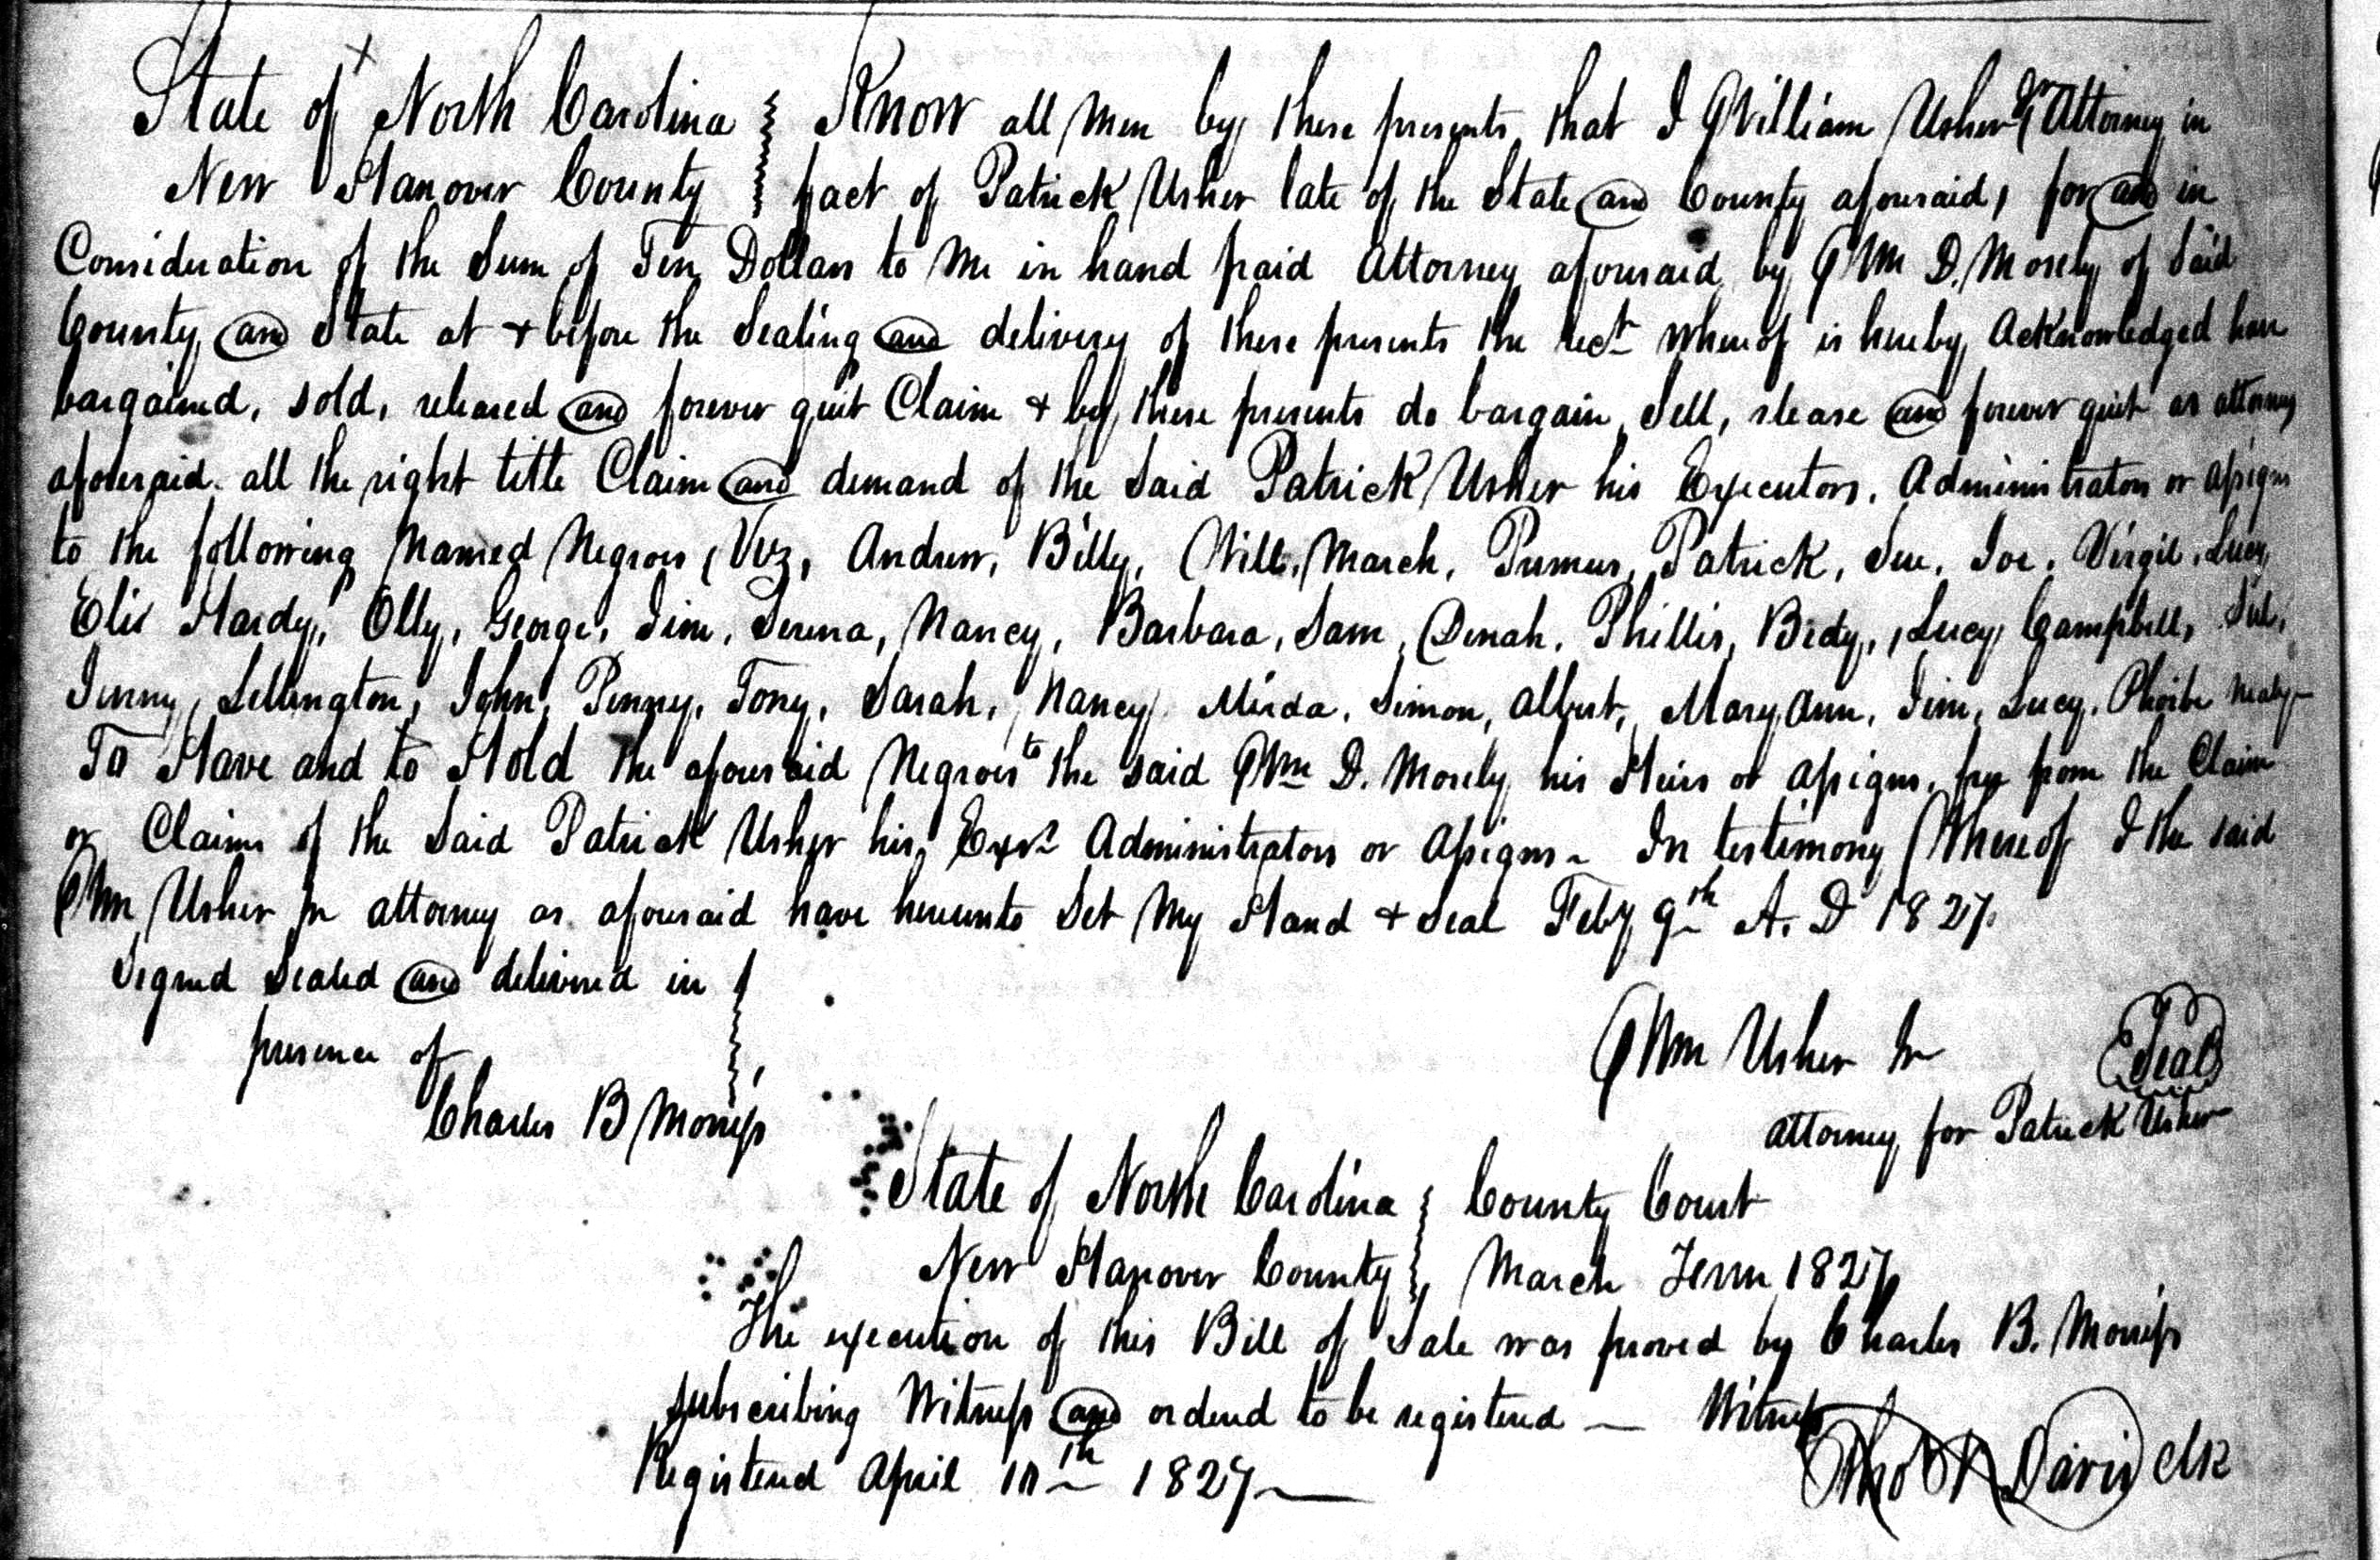 State of North Carolina Know all Men by these presents that I William Usher Jr Attorney in
New Hanover County fact of Patrick Usher late of the State and County aforesaid, for and in
Consideration of the Sum of Ten Dollars to me in hand paid Attorney aforesaid by Wm D. Mosely of Said
County and State at + before the Sealing and delivery of these presents the rect whereof is hereby Acknowledged have
bargained, sold, released and forever quit Claim + by these presents do bargain, Sell, release and forever quit as attorney
aforesaid. all the right title Claim and demand of the Said Patrick Usher his Executors, Administrators or assigns
to the following Named Negroes (Viz, Andrew, Billy, Will, March, Primus, Patrick, Sue, Joe, Virgil, Lucy,
Hardy, Olly, George, Jim, Serena, Nancy, Barbara, Sam, Dinah, Phillis, Bidy, Lucy Campbell,
Jenny, Lillington, John, Penny, Tony, Sarah, Nancy, Simon, Albert, Mary Ann, Jim, Lucy, Phoibe
To Have and to Hold the aforesaid Negroes to the said Wm D. Mosely his Heirs or assigns, from the Claim
or Claims of the Said Patrick Usher his Exrs Administrators or Assigns - In testimony Whereof I the said
Wm Usher Jr attorney as aforesaid have hereunto Set My Hand + Seal Feby 9th A. D 1827.
Signed Sealed and delivered in
presence of
Charles B Morriss
Wm Usher Jr Seal
attorney for Patrick Usher
State of North Carolina County Court
New Hanover County March Term 1827
The execution of this Bill of Sale was proved by Charles B. Morriss
subscribing Witness and ordered to be registered — Witness
Registered April 10th 1827 — Davis Clk